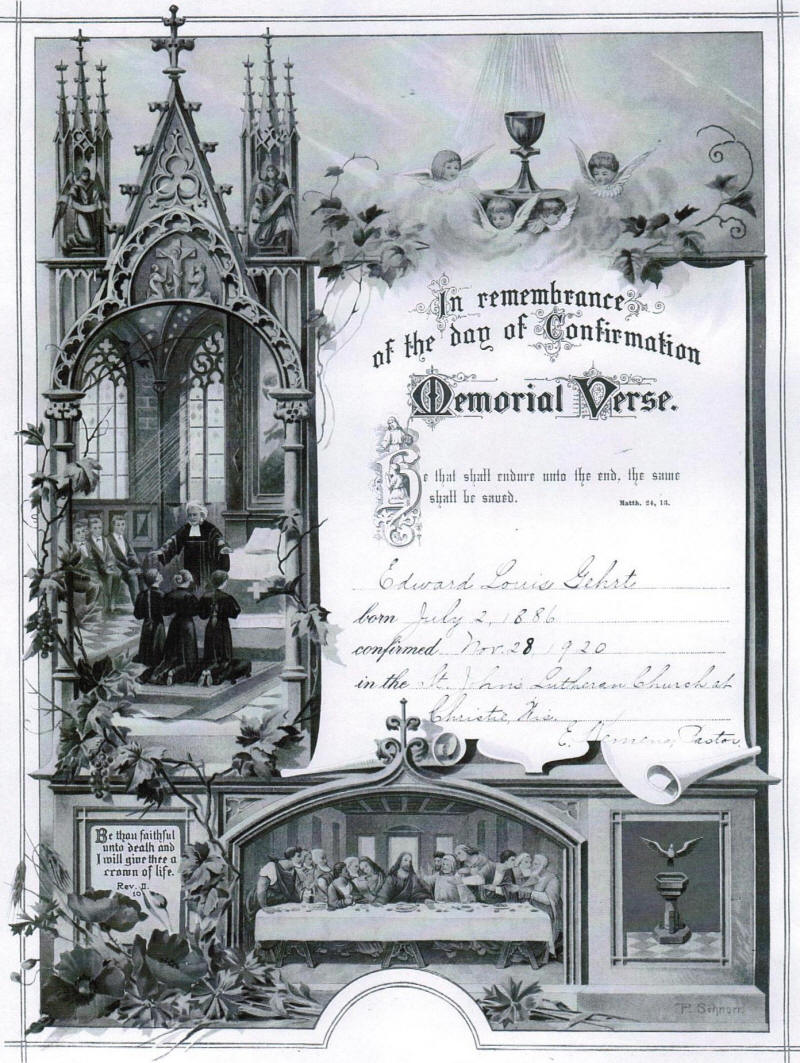 In remembrance
of the day of Confirmation
Memorial Verse.
He that shall endure unto the end, the same
shall be saved.
Matth. 24, 13.
Edward Louis Gehrt
born July 2, 1886
confirmed Nov. 28, 1920
in the St. Johns Lutheran Church at
Christie, Wis.
E. Pastor
Be thou faithful
unto death and
I will give thee a
crown of life.
Rev. II.
10
P. Schnorr